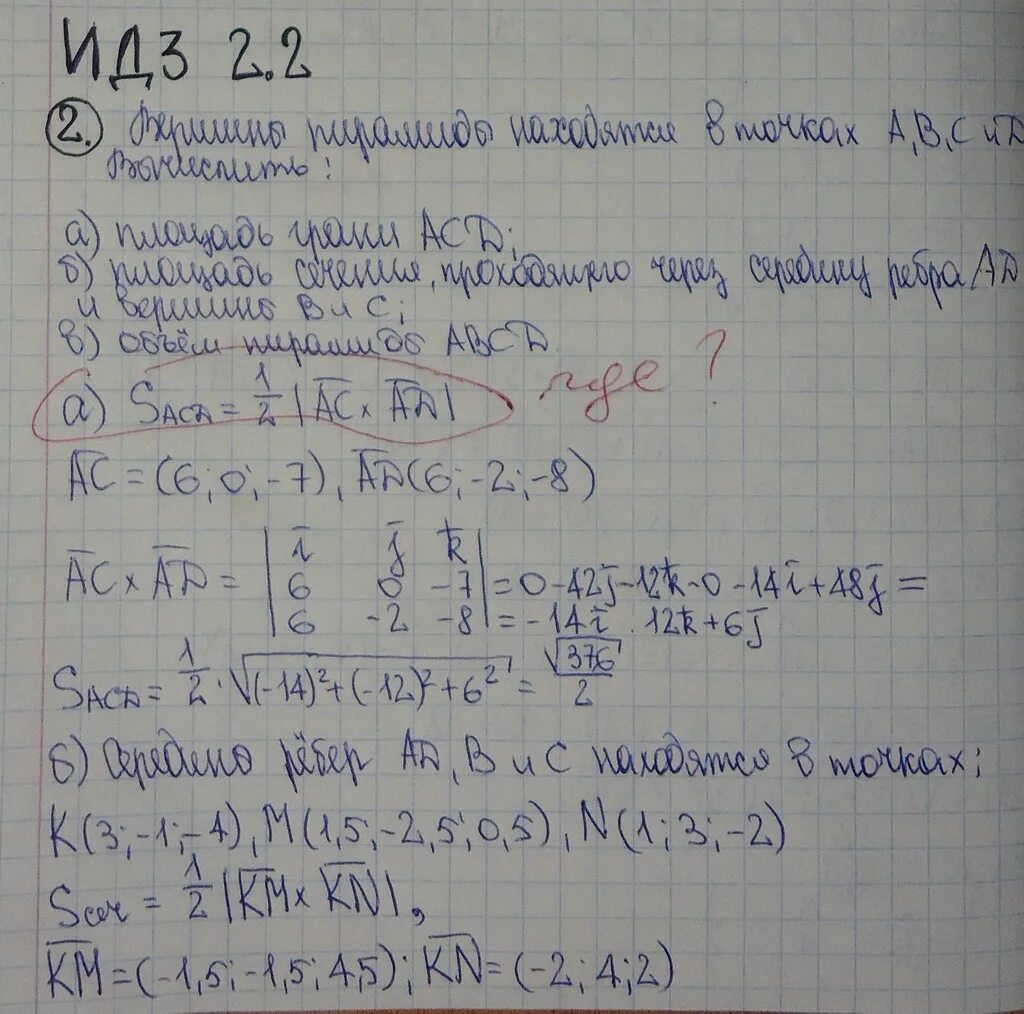 ИДЗ 2.2
2. Вершины пирамиды находятся в точках A, B, C и D
Вычислить:
а) площадь грани ACD;
б) площадь сечения, проходящего через середину ребра AD
и вершины B и C;
в) объём пирамиды ABCD
а) S_ACD = 1/2 |A̅C̅ × A̅D̅|
где ?
A̅C̅ = (6; 0; -7), A̅D̅(6; -2; -8)
A̅C̅ × A̅D̅ = | i̅ j̅ k̅ |
| 6 0 -7 | = 0 - 42j̅ - 12k̅ - 0 - 14i̅ + 48j̅ =
| 6 -2 -8 | = -14i̅ . 12k̅ + 6j̅
S_ACD = 1/2 · √((-14)² + (-12)² + 6²) = √376/2
б) Середины рёбер AD, B и C находятся в точках:
K(3; -1; -4), M(1,5; -2,5; 0,5), N(1; 3; -2)
Sсеч = 1/2 |K̅M̅ × K̅N̅|,
K̅M̅ = (-1,5; -1,5; 4,5); K̅N̅ = (-2; 4; 2)